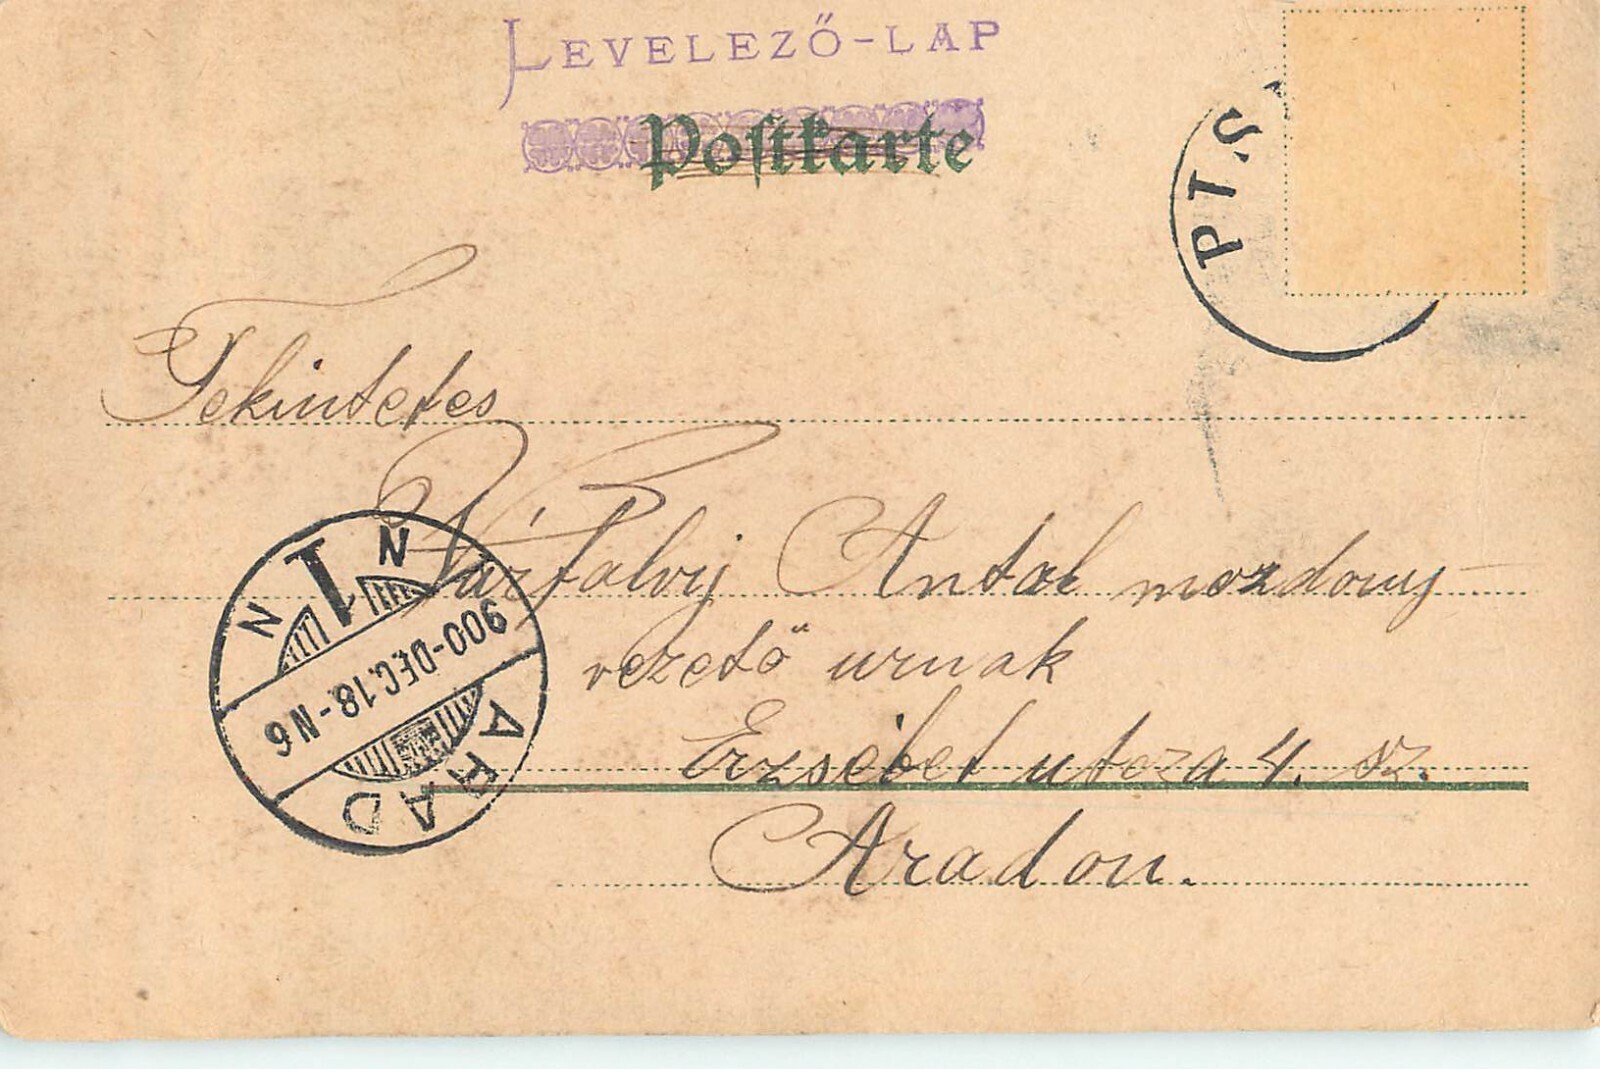 LEVELEZŐ-LAP
Postkarte
PIS
Tekintetes
Várfalvij Antal mozdony-
vezető urnak
Erzsébet utcza 4. sz.
Aradon.
N 1 N
900-DEC.18-N6
ARAD